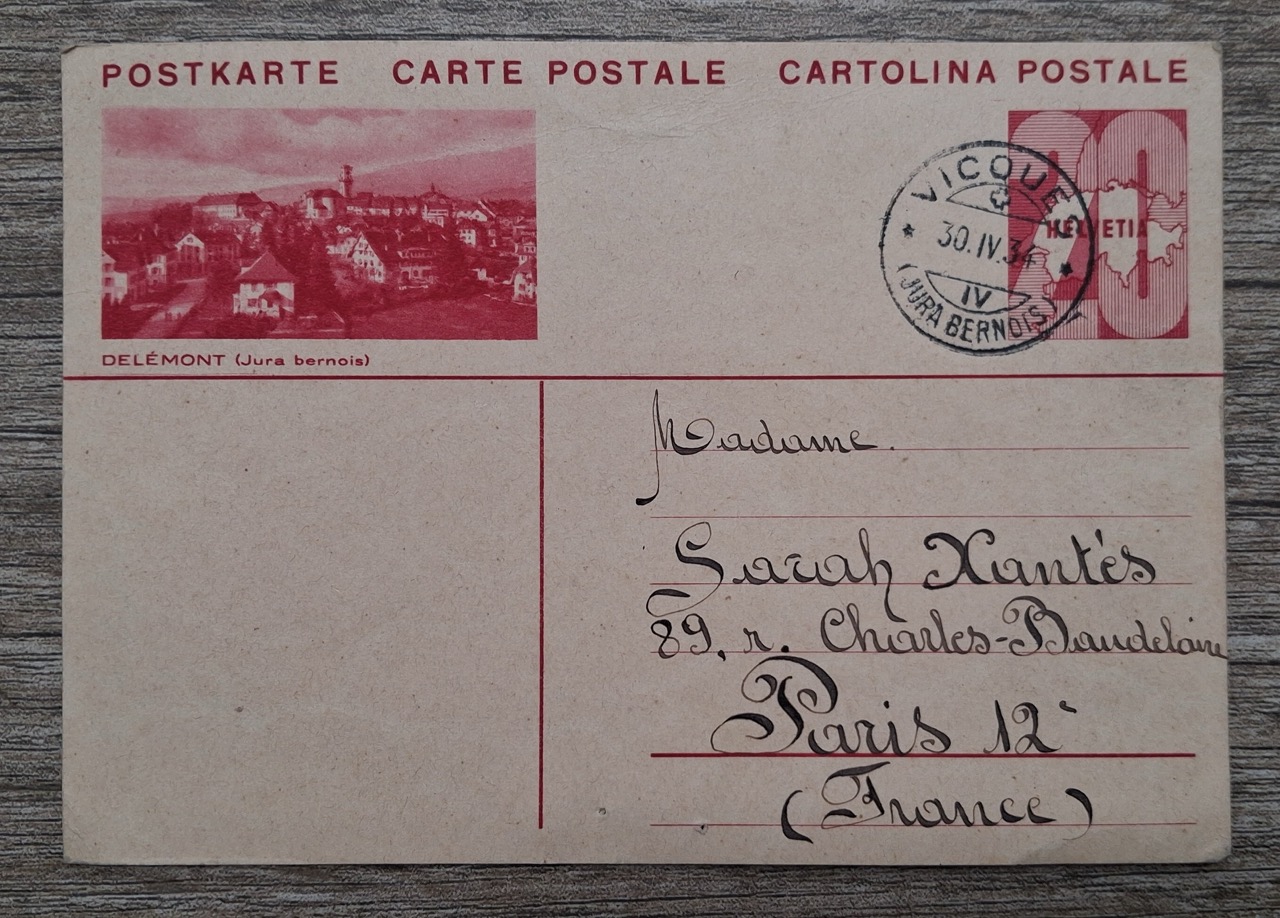 POSTKARTE CARTE POSTALE CARTOLINA POSTALE
20
HELVETIA
VICQUES
30.IV.34
IV
(JURA BERNOIS)
DELÉMONT (Jura bernois)
Madame.
Sarah Xantès
89, r. Charles-Baudelaire
Paris 12e
(France)